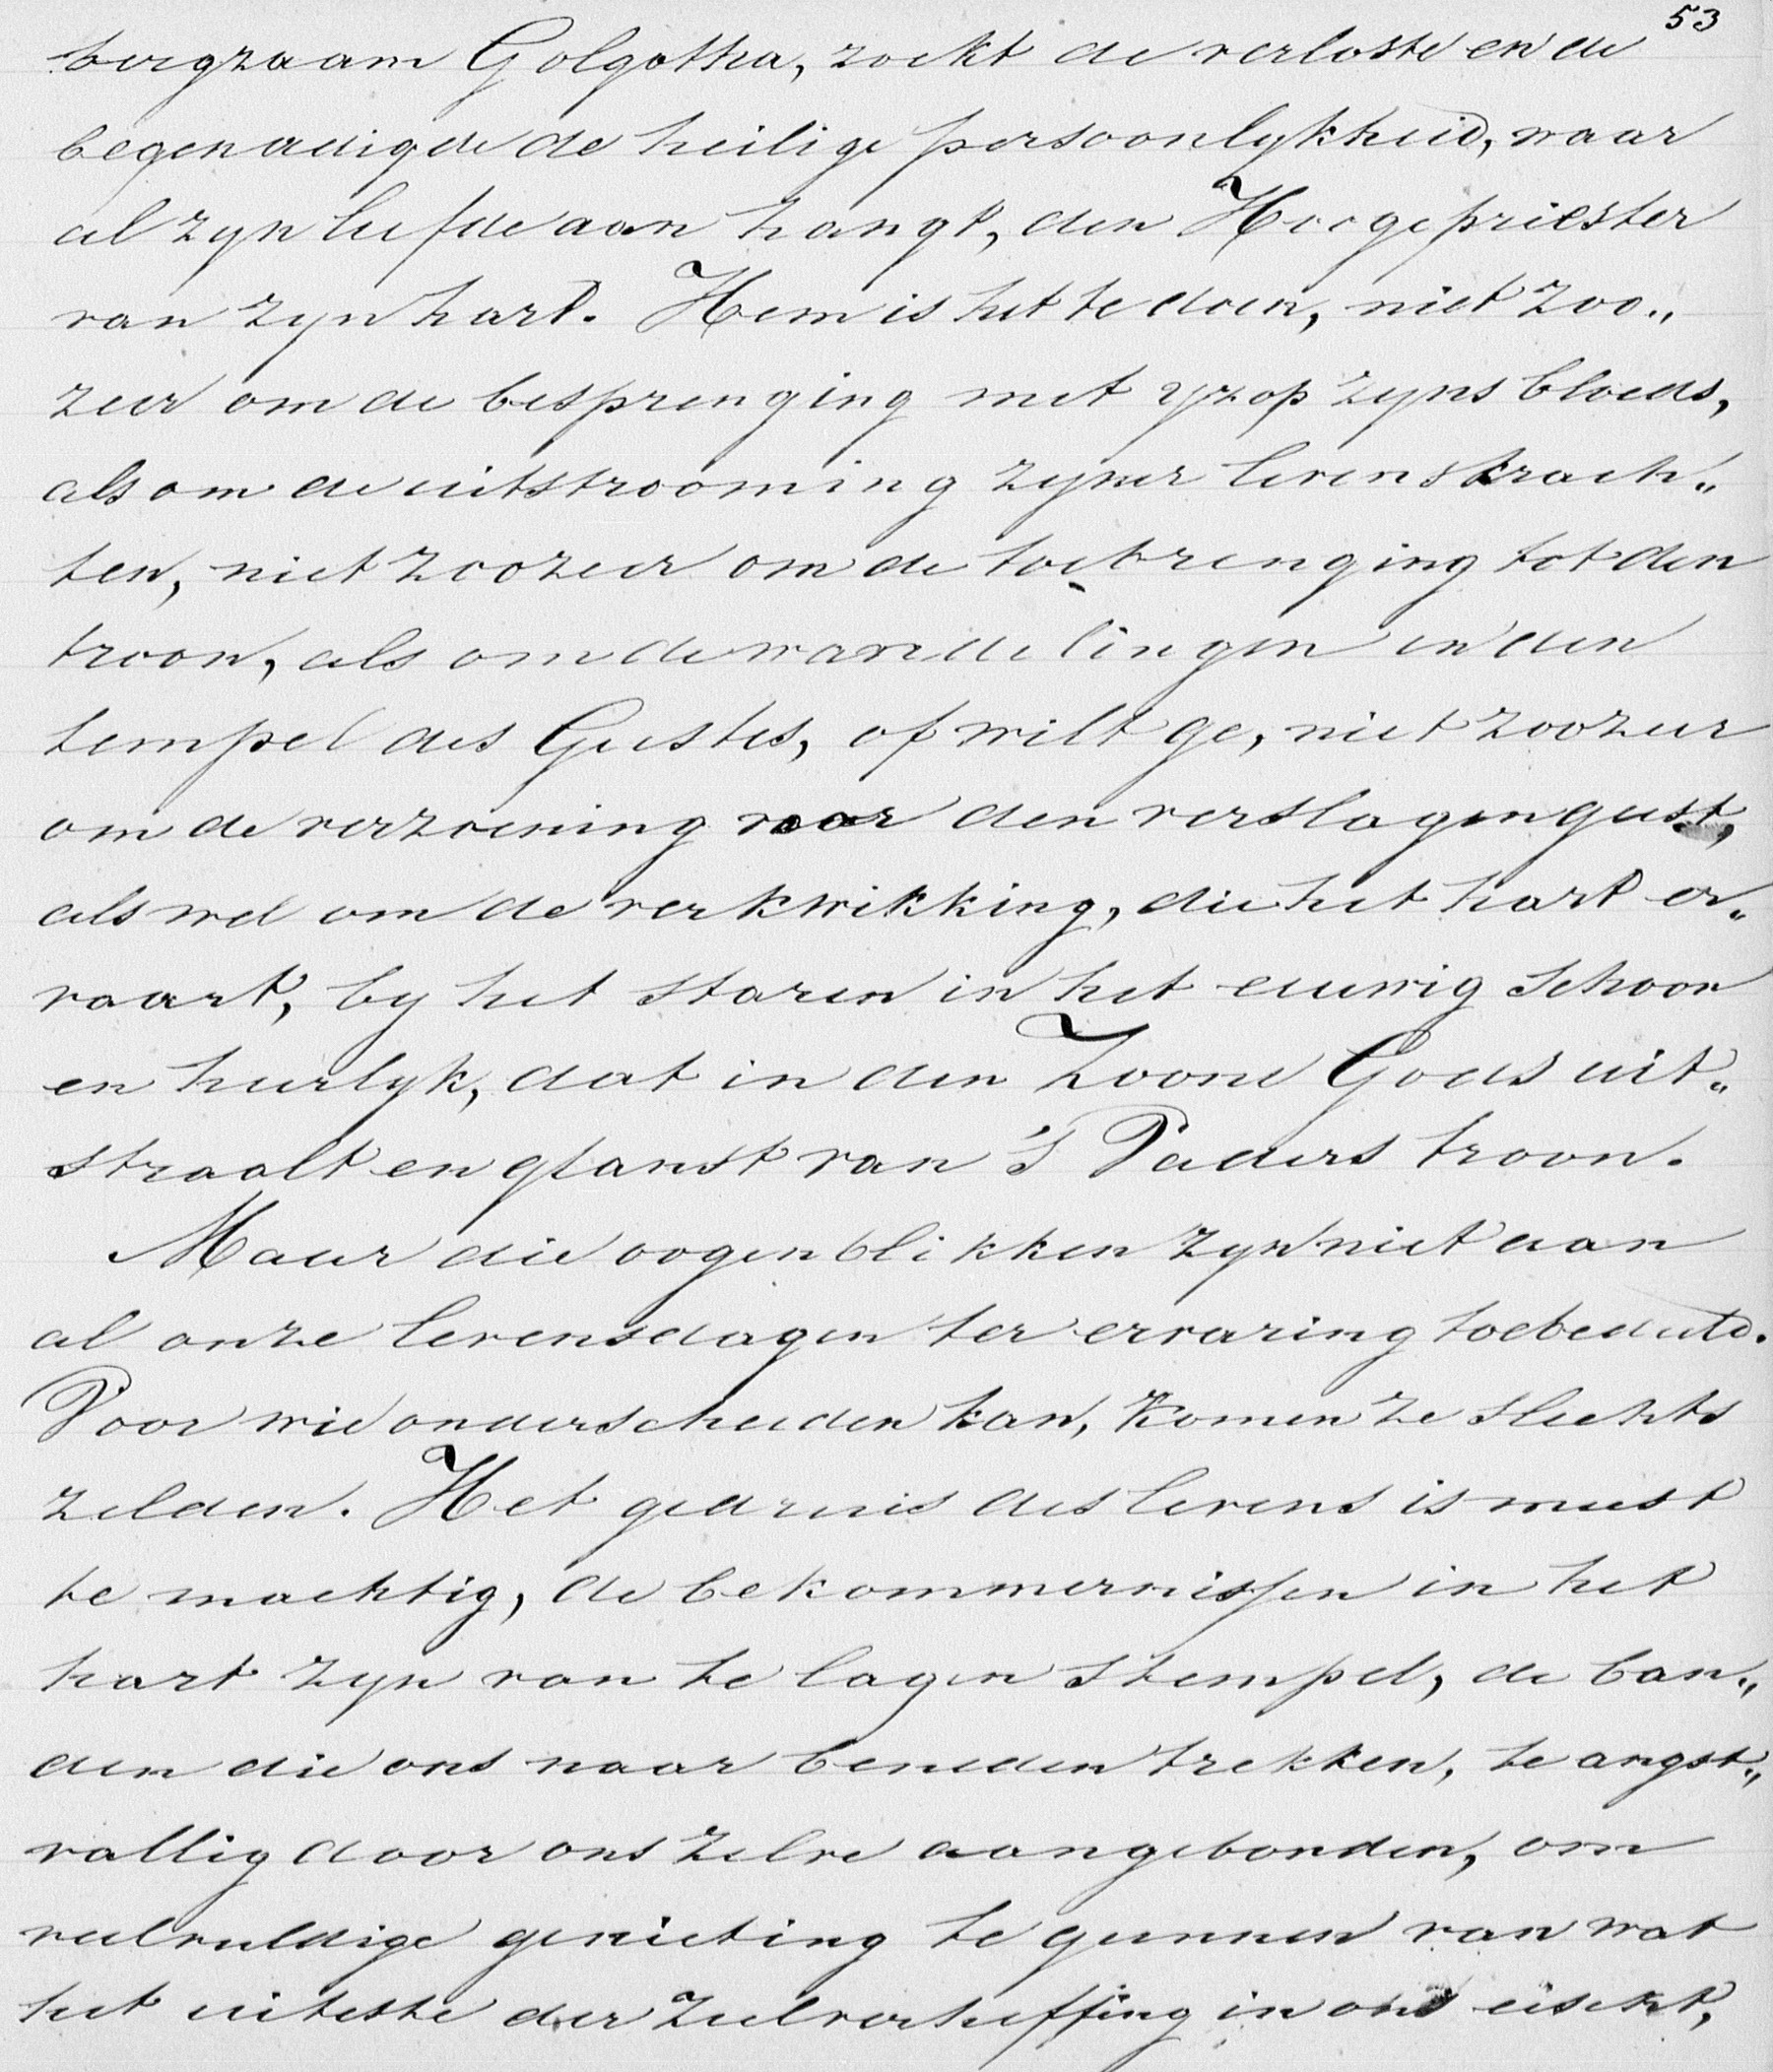 53
boegzaam Golgotha, zoekt de verloste en de
begenadigde de heilige persoonlykheid, waar
al zyn liefde aan hangt, den Hoogepriester
van zyn hart. Hem is het te doen, niet zoo„
zeer om de besprenging met yzop zyns bloeds,
als om de uitstrooming zyner levenskrach„
ten, niet zoozeer om de toebrenging tot den
troon, als om de wandelingen in den
tempel des Geestes, of wilt ge, niet zoozeer
om de verzoening voor den verslagen geest,
als wel om de verkwikking, die het hart er„
vaart, by het staren in het eeuwig schoon
en heerlyk, dat in den Zoone Gods uit„
straalt en glanst van 's Vaders troon.
Maar die oogenblikken zyn niet aan
al onze levensdagen ter ervaring toebedeeld.
Voor wie onderscheiden kan, komen ze slechts
zelden. Het gedruis des levens is meest
te machtig, de bekommernissen in het
hart zyn van te lagen stempel, de ban„
den die ons naar beneden trekken, te angst„
vallig door ons zelve aangebonden, om
veelvuldige genieting te gunnen van wat
het uiterste der zielverheffing in ons eischt,